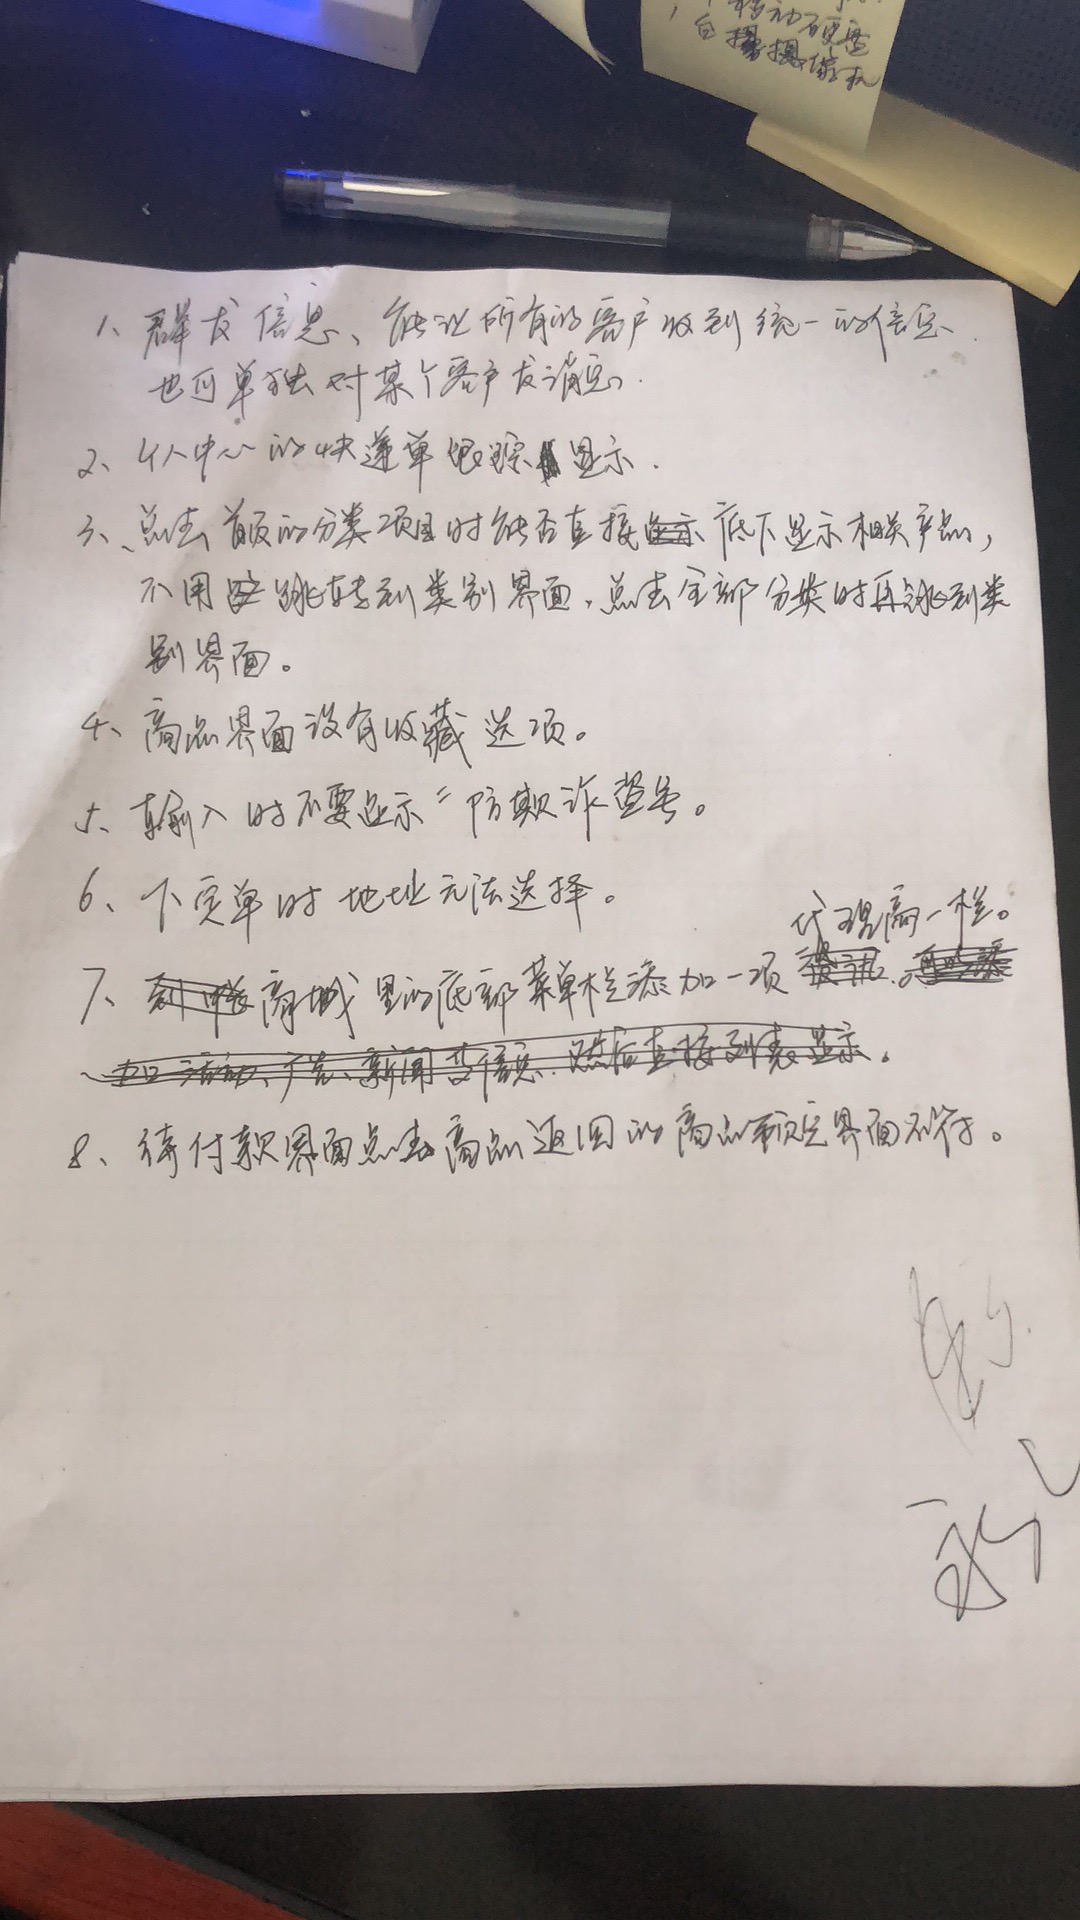 移动硬盘
自 摄像机
1、群发信息、能让所有的客户收到统一的信息.
也可单独对某个客户发消息.
2、个人中心的快递单跟踪显示.
3、点击首页的分类项目时能否直接底下显示相关产品,
不用跳转到类别界面,点击全部分类时再跳到类
别界面。
4、商品界面没有收藏选项。
5、输入时不要显示“防欺诈盗号。
6、下定单时地址无法选择。
代理商一栏。
7、商城里的底部菜单栏添加一项
加活动、广告、新闻 信息.然后直接列表显示。
8、待付款界面点击商品返回的商品 界面不符。